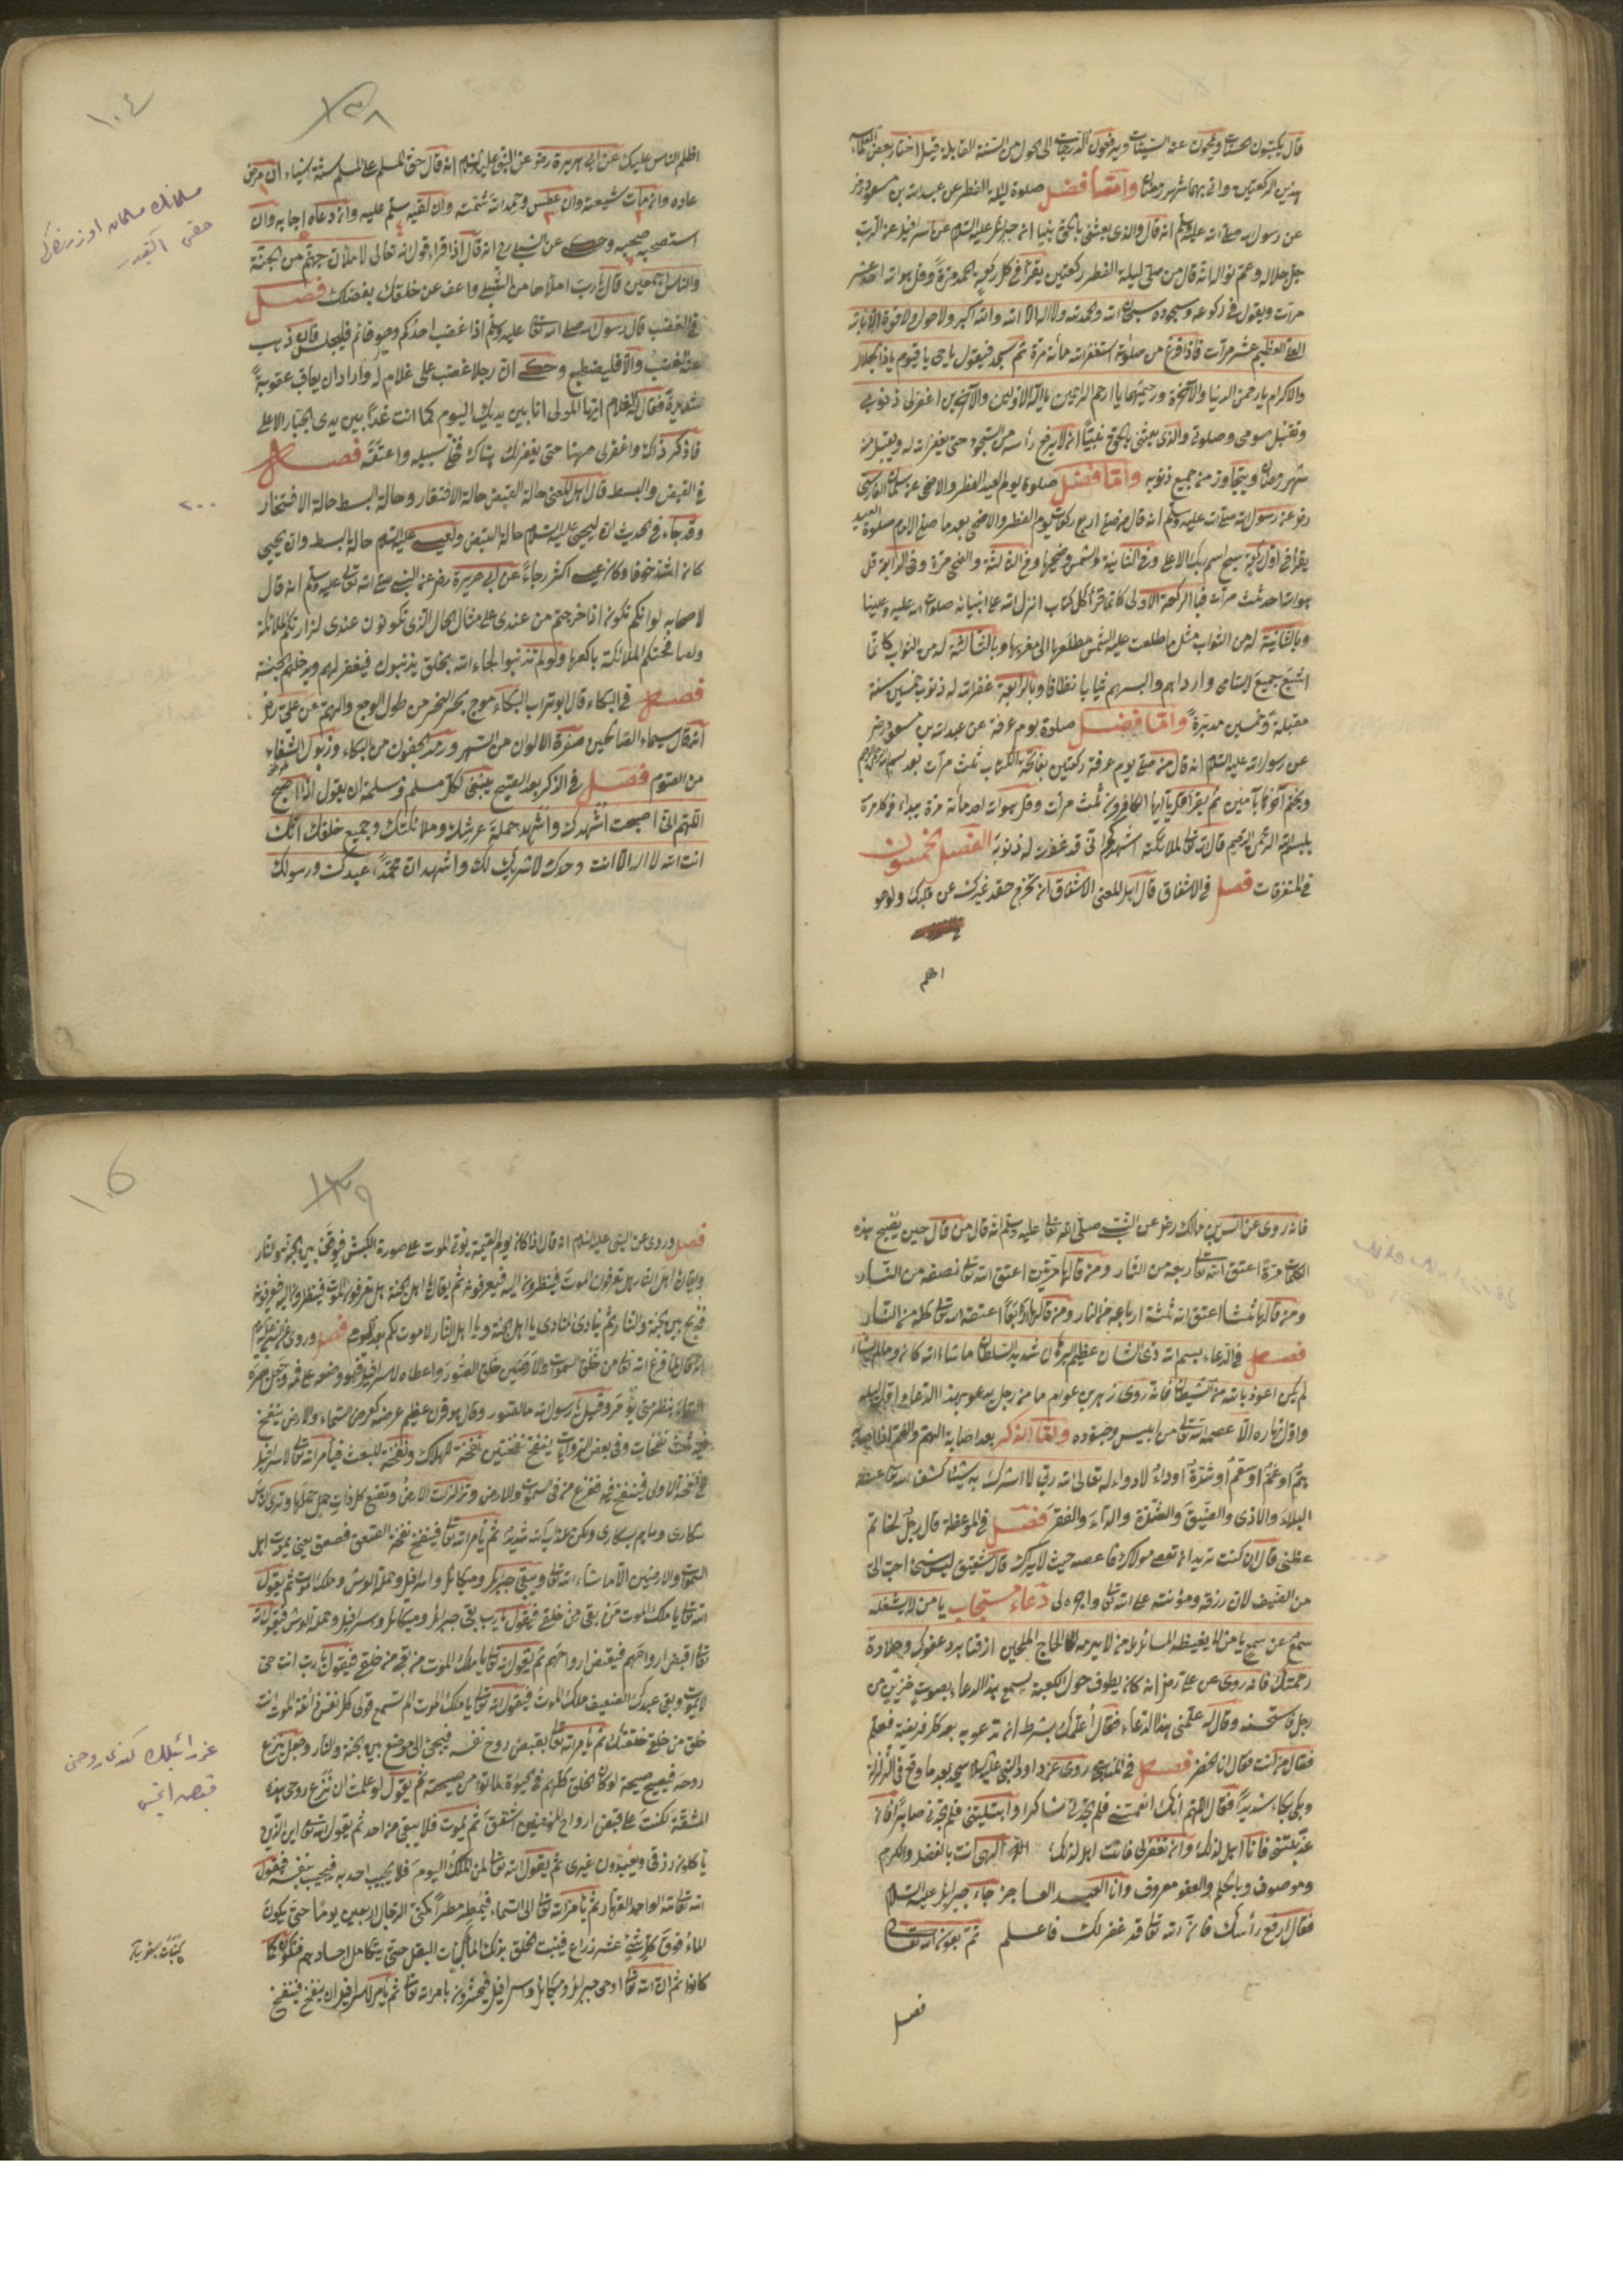 قال يكتبون الحسنات ويمحون عنه السيئات ويرفعون الدرجات الى الحول من السنة القابلة قيل اختار بعض العلماء
هذين الركعتين وانه بهما شهر رمضان واما فضل صلوة ليلة الفطر عن عبدالله بن مسعود رض
عن رسول الله صلى الله عليه وسلم انه قال والذى بعثنى بالحق نبيا ان جبرائيل عليه السلام عن اسرافيل عن الرب
جل جلاله وعم نواله انه قال من صلى ليلة الفطر ركعتين يقرأ فى كل ركعة الحمد مرة وقل هو الله احد عشر
مرات ويقول فى ركوعه وسجوده سبحان الله والحمد لله ولا اله الا الله والله اكبر ولا حول ولا قوة الا بالله
العلى العظيم عشر مرات فاذا فرغ من صلوته استغفر الله مأئة مرة ثم يسجد فيقول يا حى يا قيوم يا ذا الجلال
والاكرام يا رحمن الدنيا والآخرة ورحيمهما يا ارحم الراحمين يا اله الاولين والآخرين اغفرلى ذنوبى
وتقبل صومى وصلوتى والذى بعثنى بالحق نبيا انه لا يرفع رأسه من السجود حتى يغفر الله له ويقبل منه
شهر رمضان ويتجاوز من جميع ذنوبه واما فضل صلوة يوم العيد الفطر والاضحى عن سلمان الفارسى
رض عن رسول الله صلى الله عليه وسلم انه قال من صلى اربع ركعات يوم الفطر والاضحى بعد ما صلى الامام صلوة العيد
يقرأ فى اول ركعة سبح اسم ربك الاعلى وفى الثانية والشمس وضحيها وفى الثالثة والضحى مرة وفى الرابعة قل
هو الله احد ثلث مرات فبالركعة الاولى كانما قرأ كل كتاب انزل الله على انبيائه صلوات الله عليه وعلينا
وبالثانية له من الثواب مثل ما طلعت عليه الشمس مطلعها الى مغربها وبالثالثة له من الثواب كانما
اشبع جميع اليتامى وارداهم والبسهم ثيابا نظافا وبالرابعة غفر الله له ذنوب خمسين سنة
مقبلة وخمسين مدبرة واما فضل صلوة يوم عرفة عن عبد الله بن مسعود رض
عن رسول الله عليه السلام انه قال من صلى يوم عرفة ركعتين بفاتحة الكتاب ثلث مرات بعد بسم الله الرحمن الرحيم
ويختم آخرها بآمين ثم يقرأ قل يا ايها الكافرون ثلث مرات وقل هو الله احد مأئة مرة يبداء فى كل مرة
ببسم الله الرحمن الرحيم قال الله تعالى لملائكته اشهدكم انى قد غفرت له ذنوبه الفصل الخمسون
فى المتفرقات فصل فى الاشفاق قال اهل المعنى الاشفاق ان تخرج حقد غيرك عن قلبك ولو هو
اظلم
١٠٤
١٣٨
اظلم الناس عليك عن ابى هريرة رض عن النبى عليه السلام انه قال حق المسلم على المسلم ستة اشياء ان مرض
عاده وان مات شيعته وان عطس وحمد الله شمته وان لقيه سلم عليه وان دعاه اجابه وان
استصحبه صحبه وحكى عن الشبلى رح انه قال اذا قراء قوله تعالى لاملأن جهنم من الجنة
والناس اجمعين قال يا رب املأها من الشبلى واعف عن خلقك بفضلك فصل
فى الغضب قال رسول الله صلى الله تعالى عليه وسلم اذا غضب احدكم وهو قائم فليجلس فان ذهب
عنه الغضب والا فليضطجع وحكى ان رجلا غضب على غلام له واراد ان يعاقب عقوبة
شديدة فقال له الغلام ايها المولى انا بين يديك اليوم كما انت غدا بين يدى الجبار الاعلى
فاذكر ذلك واغفرلى ههنا حتى يغفر لك هناك فخلى سبيله واعتقه فصل
فى القبض والبسط قال اهل المعنى حالة القبض حالة الافتقار وحالة البسط حالة الافتخار
وقد جاء فى الحديث ان ليحيى عليه السلام حالة القبض ولعيسى عليه السلام حالة البسط وان يحيى
كان اشد خوفا وكان عيسى اكثر رجاء عن ابى هريرة رض عن النبى صلى الله تعالى عليه وسلم انه قال
لاصحابه لو انكم تكونون اذا خرجتم من عندى على مثال الحال الذى تكونون عندى لزارتكم الملائكة
ولصافحتكم الملائكة باكفها ولو لم تذنبوا لجاء الله بخلق يذنبون فيغفر لهم ويدخلهم الجنة
فصل فى البكاء قال ابو تراب البكاء موج بحر التحير من طول الوجع والهم عن على رض
انه قال سيماء الصالحين صفرة الالوان من السهر ورمد الجفون من البكاء وذبول الشفاه
من الصوم فصل فى الذكر بعد الصبح ينبغى لكل مسلم ومسلمة ان يقول اذا اصبح
اللهم انى اصبحت اشهدك واشهد حملة عرشك وملائكتك وجميع خلقك انك
انت الله لا اله الا انت وحدك لا شريك لك واشهد ان محمدا عبدك ورسولك
مسلمانك مسلمان اوزرينده كى
حقى التيدر
٢٠٠
فانه روى عن انس بن مالك رض عن النبى صلى الله تعالى عليه وسلم انه قال من قال حين يصبح هذه
الكلمات مرة اعتق الله تعالى ربعه من النار ومن قالها مرتين اعتق الله تعالى نصفه من النار
ومن قالها ثلثا اعتق الله ثلثة ارباعه من النار ومن قالها اربعا اعتقه الله تعالى كله من النار
فصل فى الدعاء بسم الله ذى الشان عظيم البرهان شديد السلطان ما شاء الله كان وما لم يشاء
لم يكن اعوذ بالله من الشيطان فانه روى زهير بن عوام ما من رجل يدعو بهذا الدعاء اول ليله
واول نهاره الا عصمه الله تعالى من ابليس وجنوده واما الذكر بعد اصابة الهم والغم اذا اصابه
هم او غم او سقم او شدة او داء لا دواء له تعالى الله ربى لا اشرك به شيئا كشف الله تعالى عنه
البلاء والاذى والضيق والشدة والداء والفقر فصل فى الموعظة قال رجل لحاتم
عظنى قال ان كنت تريد ان تعصى مولاك فاعصه حيث لا يراك قال شقيق ليس شئ احب الى
من الضيف لان رزقه ومؤنته على الله تعالى واجره لى دعاء مستجاب يا من لا يشغله
سمع عن سمع يا من لا يغيظه المسائل يا من لا يبرمه الحاح الملحين اذقنا برد عفوك وحلاوة
رحمتك فانه روى عن على رض انه كان يطوف حول الكعبة يسمع بهذا الدعاء بصوت حزين من
رجل فاستحسنه وقال له علمنى هذا الدعاء فقال اعلمك بشرط ان تدعو به بعد كل فريضة فعلم
فقال من انت فقال انا الخضر فصل فى المناجاة روى عن داود النبى عليه السلام سجد بعد ما وقع فى الزلة
وبكى بكاء شديدا فقال اللهم انك انعمتنى فلم تجدنى شاكرا وابتليتنى فلم تجدنى صابرا فان
عذبتنى فانا اهل لذلك وان تغفرلى فانت اهل لذلك الهى انت بالفضل والكرم
وموصوف وبالحلم والعفو معروف وانا العبد العاجز جاء جبرائيل عليه السلام
فقال ارفع رأسك فان الله تعالى قد غفر لك فاعلم تم بعون الله تعالى
فصل
١٠٥
١٣٩
فصل وروى عن النبى عليه السلام انه قال اذا كان يوم القيمة يوتى الموت على صورة الكبش فيوقف بين الجنة والنار
ويقال اهل النار هل تعرفون الموت فينظرون اليه فيعرفونه ثم يقال يا اهل الجنة هل تعرفون الموت فينظرون اليه فيعرفونه
فيذبح بين الجنة والنار ثم ينادى المنادى يا اهل الجنة ويا اهل النار لا موت لكم بعد اليوم فصل وروى عن النبى عليه السلام
انه قال لما فرغ الله تعالى من خلق السموات والارضين خلق الصور واعطاه لاسرافيل فهو وضعه على فمه وشخص بصره
السماء ينظر متى يؤمر وقيل يا رسول الله ما الصور وقال هو قرن عظيم عرضه كعرض السماء والارض ينفخ
فيه ثلث نفخات وفى بعض الروايات ينفخ نفختين نفخة للهلاك ونفخة للبعث فيأمر الله تعالى لاسرافيل
فى نفخة الاولى فينفخ فيه ففزع من فى السموات والارض وتزلزلت الارض وتضع كل ذات حمل حملها وترى الناس
سكارى وما هم بسكارى ولكن عذاب الله شديد ثم يأمر الله تعالى فينفخ نفخة الصعق فصعق يعنى يموت اهل
السموات والارضين الا ما شاء الله تعالى ويبقى جبرائيل وميكائيل واسرافيل وحملة العرش وملك الموت ثم يقول
الله تعالى يا ملك الموت من بقى من خلقى فيقول يا رب بقى جبرائيل وميكائيل واسرافيل وحملة العرش فيقول الله
تعالى اقبض ارواحهم فيقبض ارواحهم ثم يقول الله تعالى يا ملك الموت من بقى من خلقى فيقول يا رب انت حى
لا يموت وبقى عبدك الضعيف ملك الموت فيقول الله تعالى يا ملك الموت الم تسمع قولى كل نفس ذائقة الموت انت
خلق من خلقى خلقتك ثم يأمر الله تعالى بقبض روح نفسه فيجئ الى موضع بين الجنة والنار وجعل ينزع
روحه فيصيح صيحة لو كان الخلق كلهم فى الحيوة لماتوا من صيحته ثم يقول لو علمت ان نزع روحى بهذه
المشقة لكنت على قبض ارواح المؤمنين اشفق ثم يموت فلا يبقى من احد ثم يقول الله تعالى اين الذين
يأكلون رزقى ويعبدون غيرى ثم يقول الله تعالى لمن الملك اليوم فلا يجيب احد به فيجيب بنفسه فيقول
الله تعالى لله الواحد القهار ثم يأمر الله تعالى الى السماء فيمطر مطرا كمنى الرجال اربعين يوما حتى يكون
الماء فوق كل شئ عشر ذراع فينبت الخلق بذلك الماء كنبات البقل حتى يتكامل اجسادهم فتكون كما
كانوا ثم ان الله تعالى اوحى جبرائيل وميكائيل واسرافيل فيحشرون بامر الله تعالى ثم يأمر لاسرافيل ان ينفخ فينفخ
عزرائيلك كندى روحنى
قبض ايتمسى